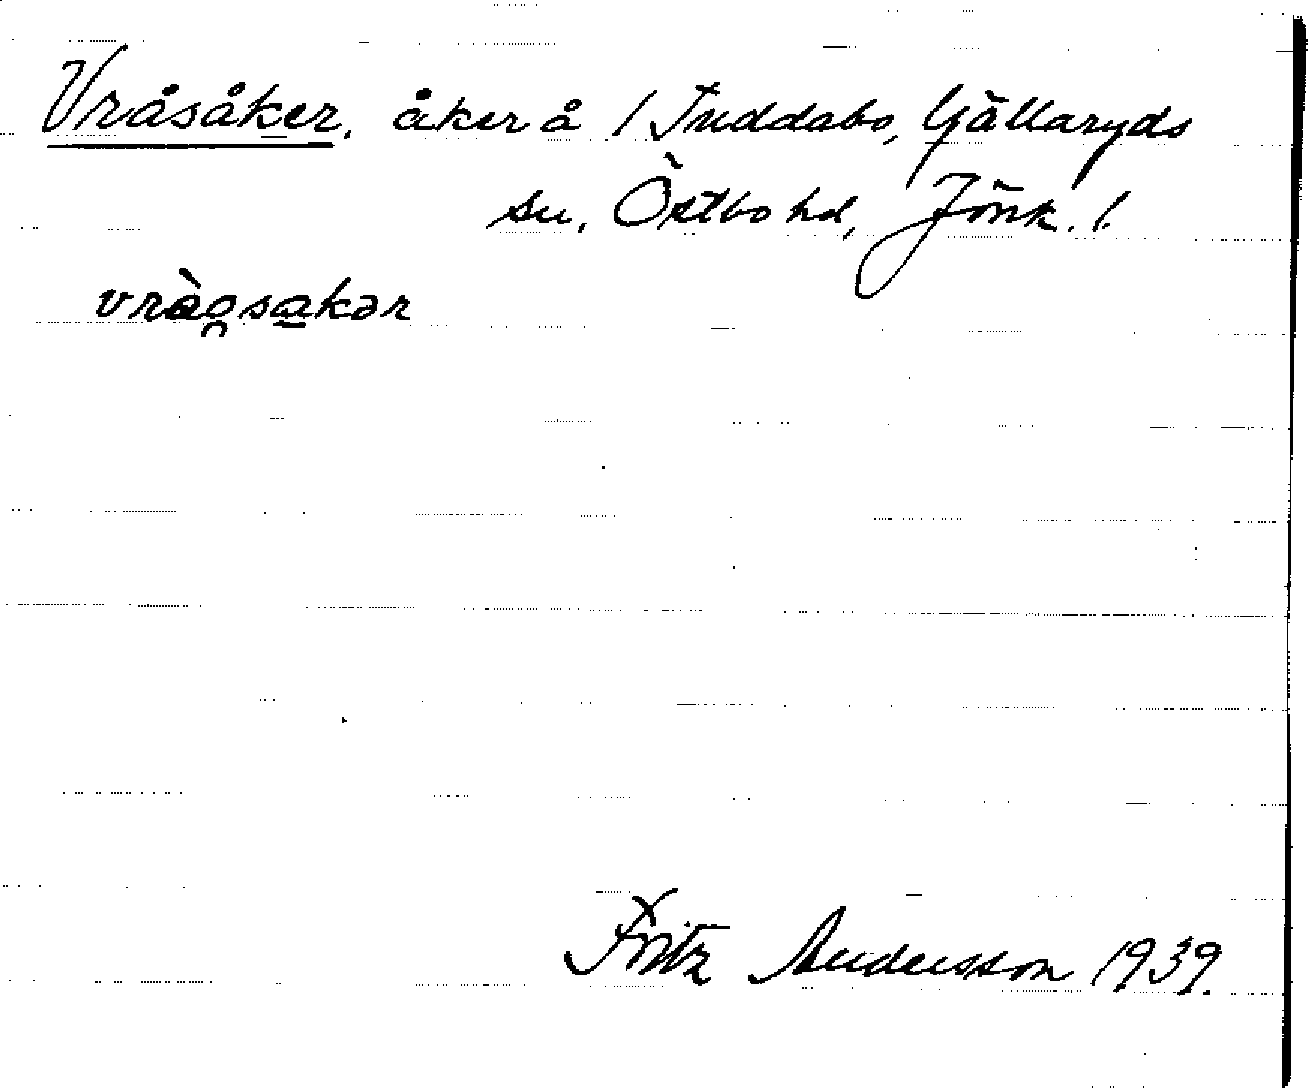 Vråsåker, åker å 1 Tuddabo, Gällaryds
sn, Östbo hd, Jönk. l.
vrào̯sa̱kər
Fritz Andersson 1939.